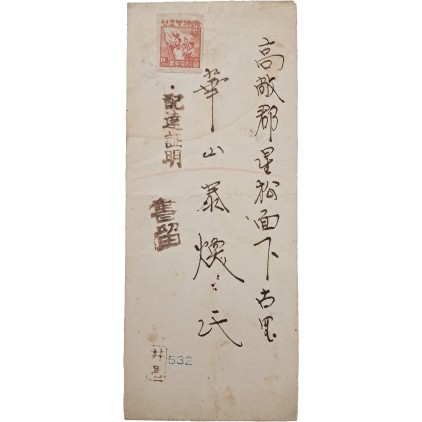 高敞郡星松面下古里
華山泰煥氏
配達証明
書留
532